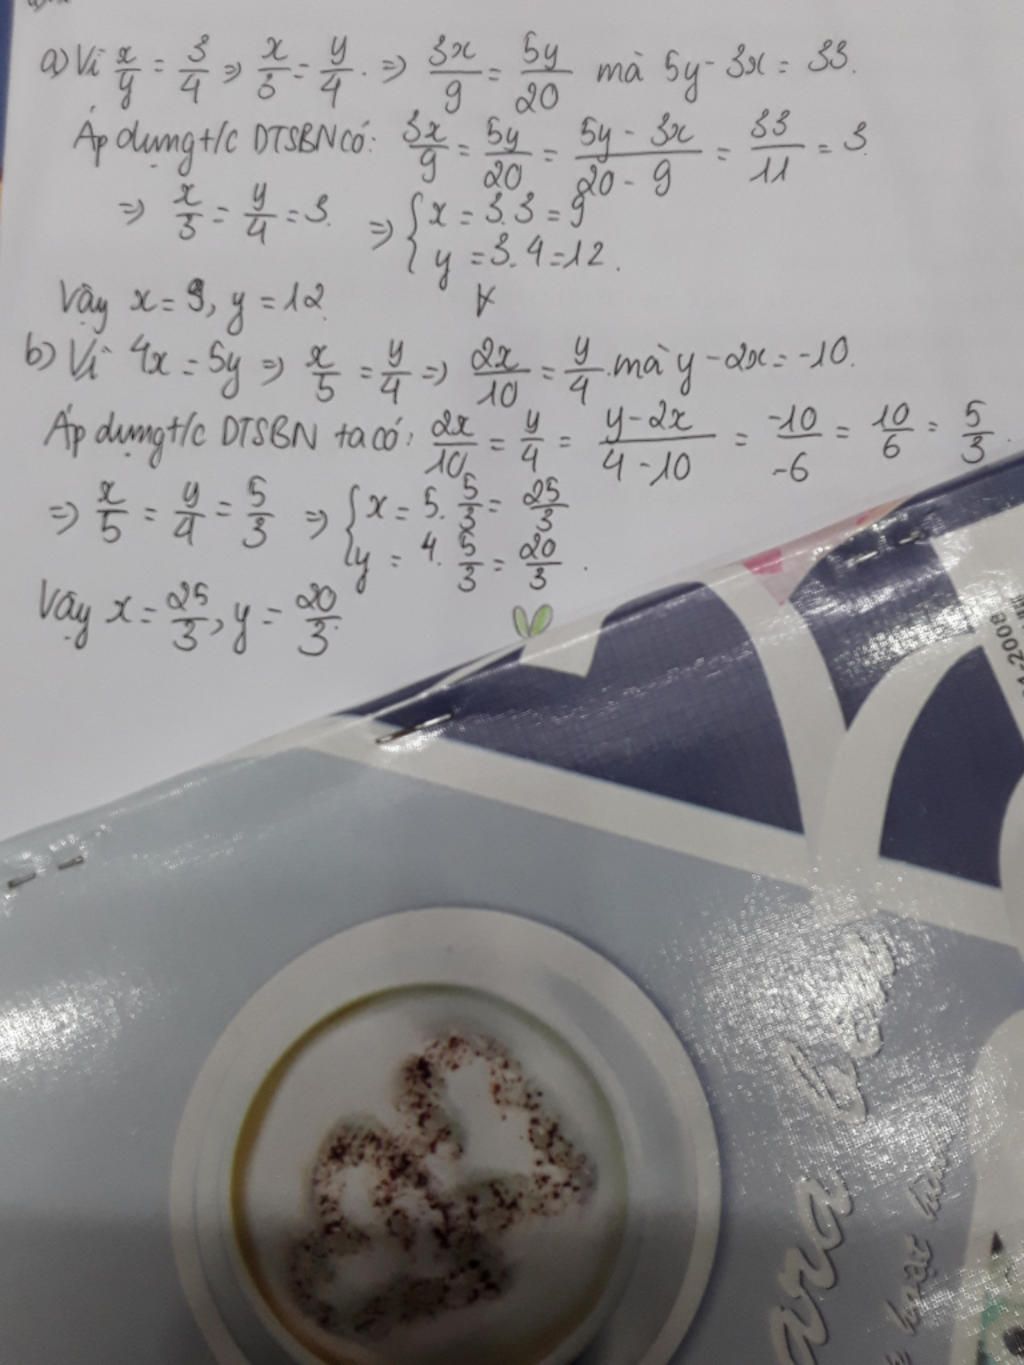 a) Vì x/y = 3/4 => x/3 = y/4. => 3x/9 = 5y/20 mà 5y - 3x = 33.
Áp dụng t/c DTSBN có: 3x/9 = 5y/20 = (5y - 3x)/(20 - 9) = 33/11 = 3
=> x/3 = y/4 = 3. => { x = 3.3 = 9
y = 3.4 = 12.
Vậy x = 9, y = 12
b) Vì 4x = 5y => x/5 = y/4 => 2x/10 = y/4. mà y - 2x = -10.
Áp dụng t/c DTSBN ta có: 2x/10 = y/4 = (y - 2x)/(4 - 10) = -10/-6 = 10/6 = 5/3.
=> x/5 = y/4 = 5/3 => { x = 5. 5/3 = 25/3
y = 4. 5/3 = 20/3.
Vậy x = 25/3, y = 20/3.
1-2008